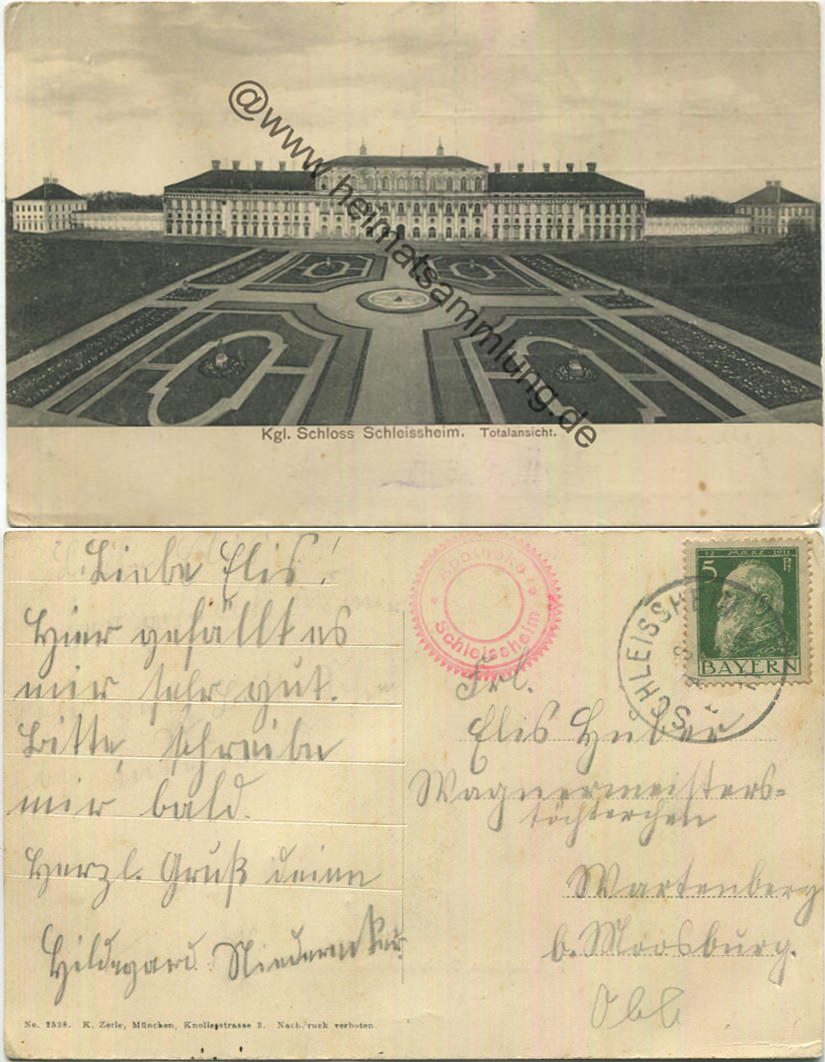 @www.heimatsammlung.de
Kgl. Schloss Schleissheim. Totalansicht.
Liebe Elis!
Hier gefällt es
mir sehr gut.
Bitte, schreibe
mir bald.
Herzl. Gruß deine
Hildegard
Apotheke
Schleissheim
12 MÄRZ 1911
5 Pf
BAYERN
SCHLEISSHEIM
Frl.
Elis Huber
Wagnermeisters-
töchterchen
Wartenberg
b. Moosburg.
Obb
No. 2538. K. Zerle, München, Knollerstrasse 3. Nachdruck verboten.